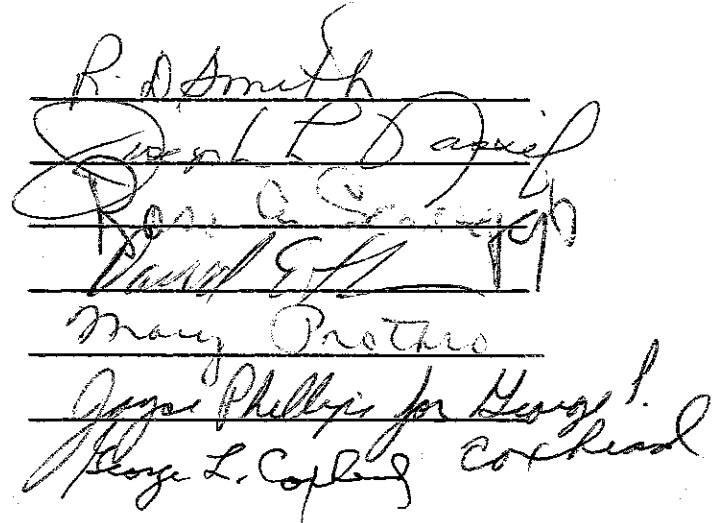 R. D. Smith
Joseph L Daniel
Rose
David
Mary Prothro
Joyce Phillips for George P.
Coxhead
George L. Copland